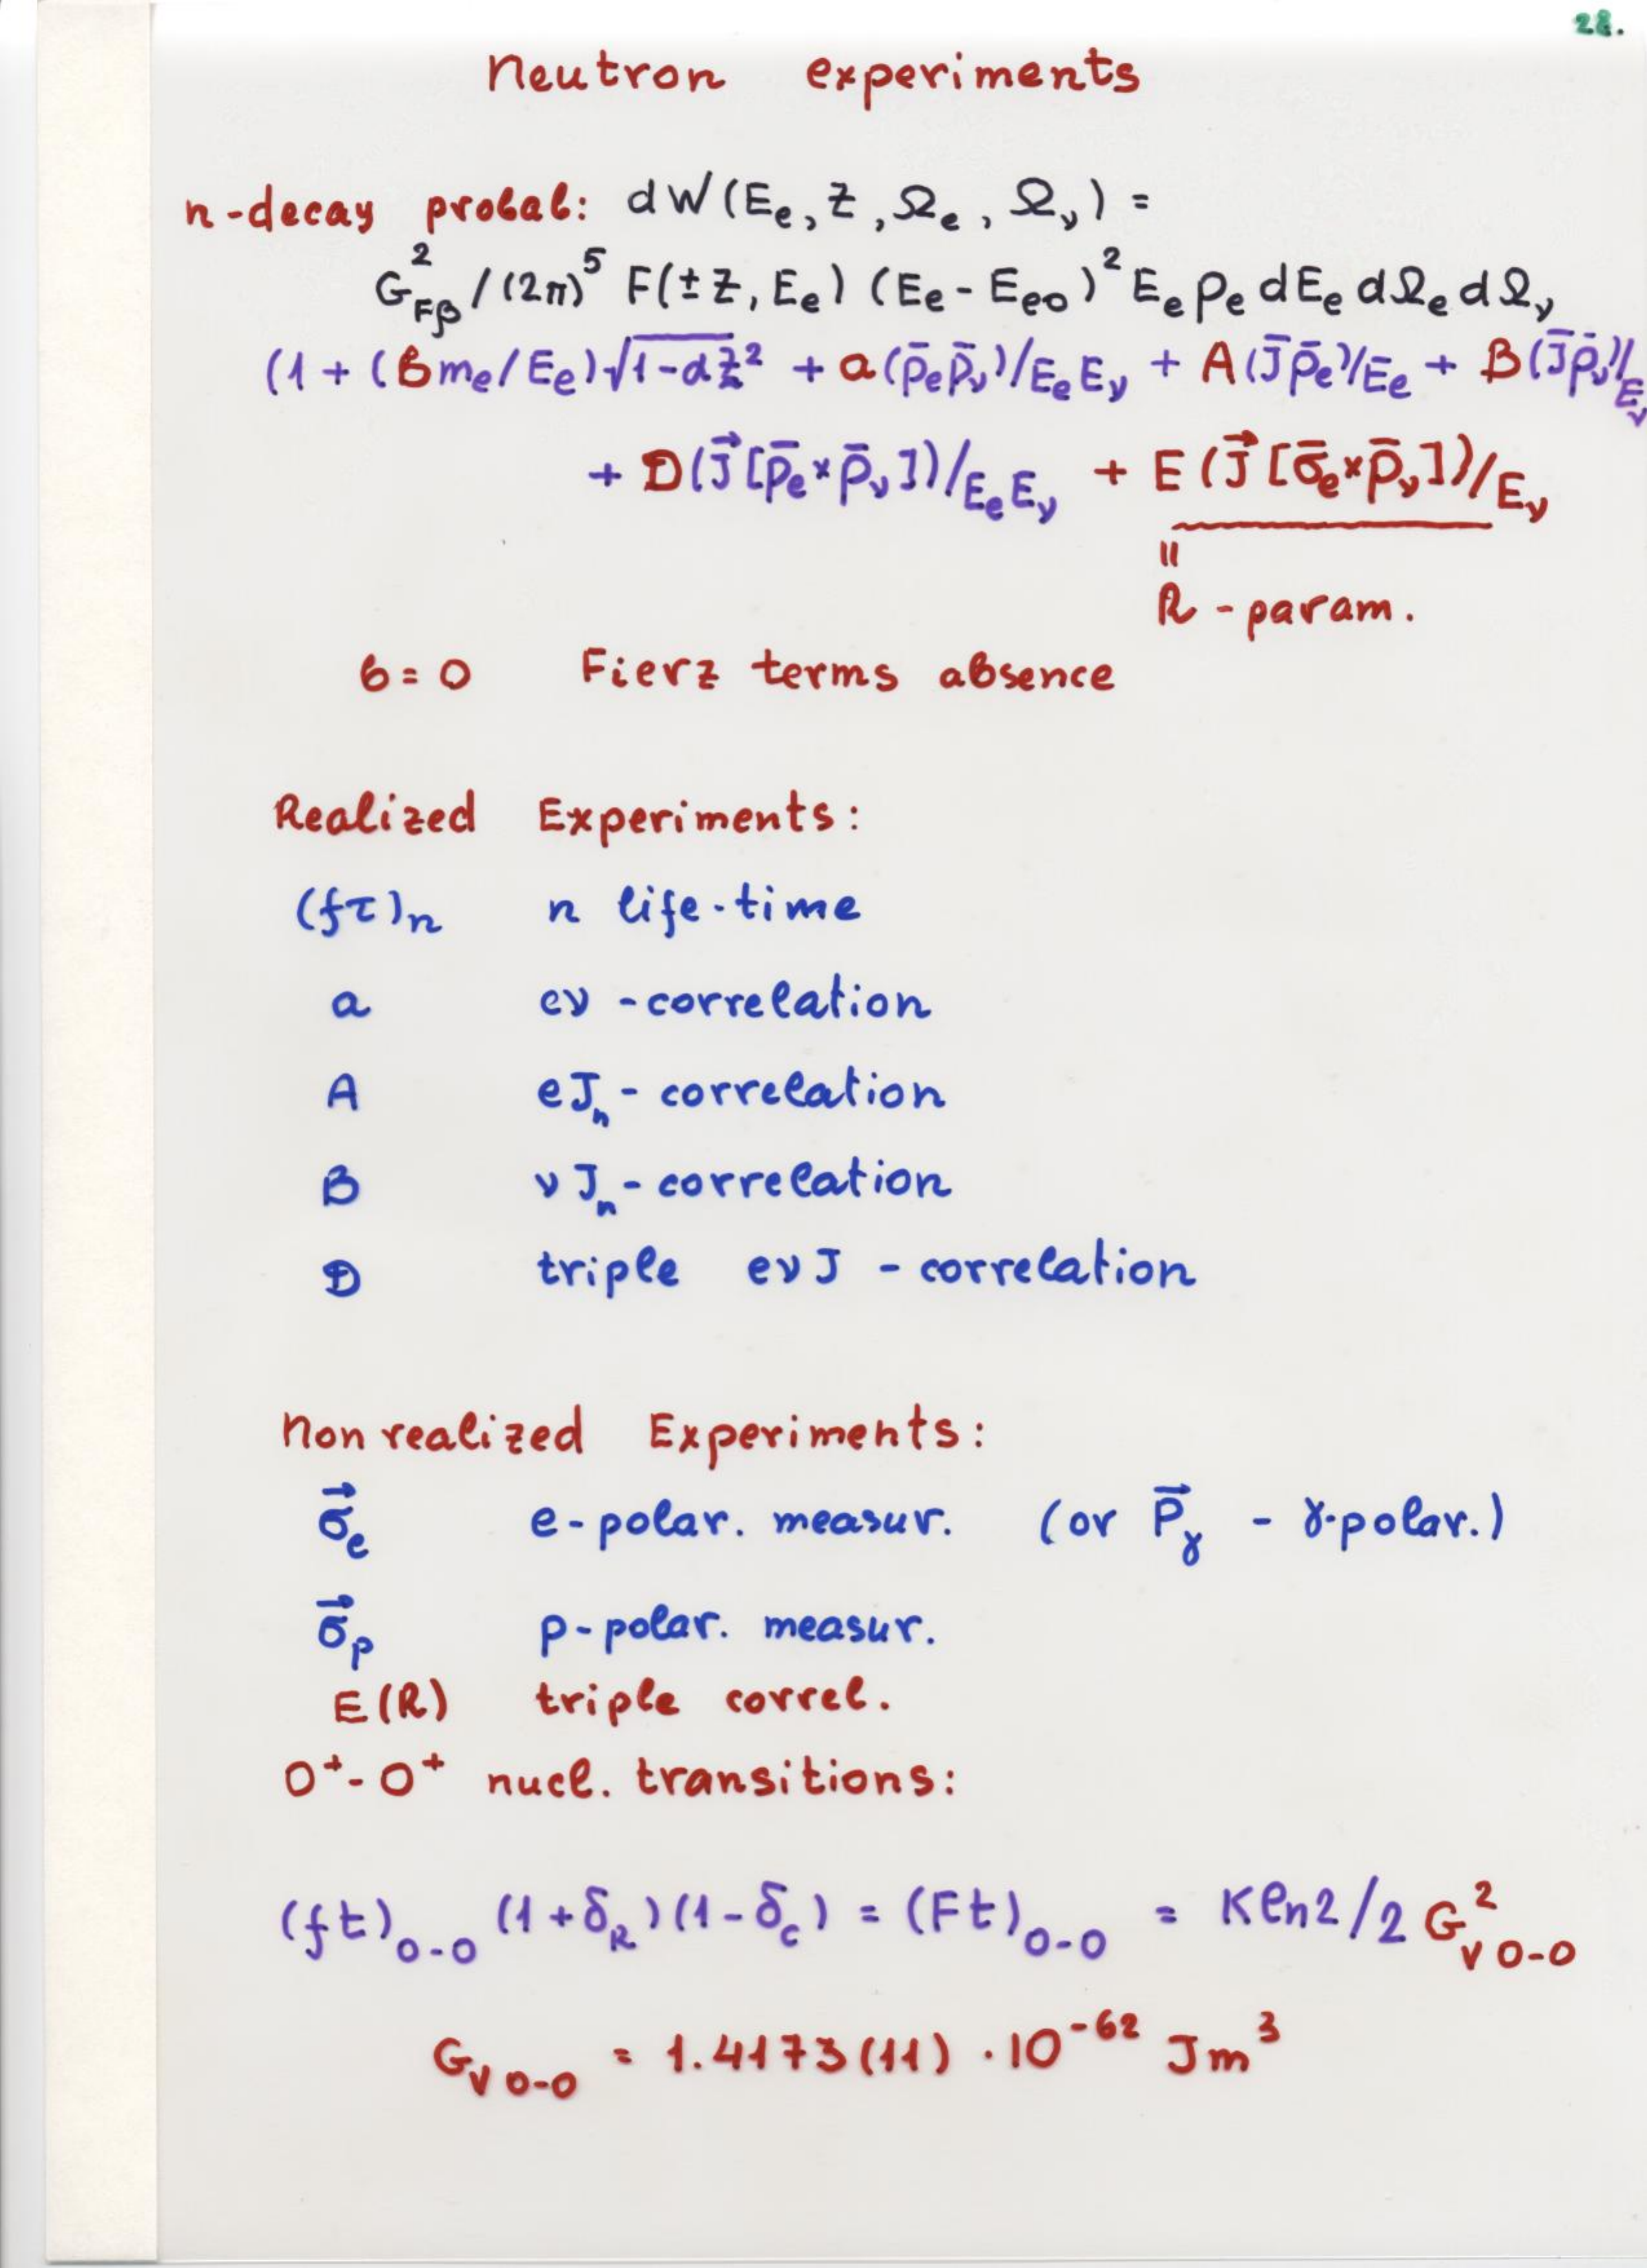 28.
Neutron experiments
n-decay probab: dW(E_e, Z, Ω_e, Ω_ν) =
G²_Fβ/(2π)⁵ F(±Z, E_e) (E_e - E_eo)² E_e p_e dE_e dΩ_e dΩ_ν
(1 + (b m_e/E_e)√1-αZ² + a(p̄_e p̄_ν)/E_e E_ν + A(J̄ p̄_e)/E_e + B(J̄ p̄_ν)/E_ν
+ D(J⃗[p̄_e×p̄_ν])/E_e E_ν + E(J⃗[σ̄_e×p̄_ν])/E_ν
=
R - param.
b = 0 Fierz terms absence
Realized Experiments:
(fτ)_n n life-time
a eν - correlation
A eJ_n - correlation
B νJ_n - correlation
D triple eνJ - correlation
Nonrealized Experiments:
σ⃗_e e-polar. measur. (or P⃗_γ - γ-polar.)
σ⃗_p p-polar. measur.
E(R) triple correl.
0⁺-0⁺ nucl. transitions:
(ft)_0-0 (1+δ_R)(1-δ_c) = (Ft)_0-0 = Kln2/2 G²_V 0-0
G_V 0-0 = 1.4173(11) · 10⁻⁶² Jm³